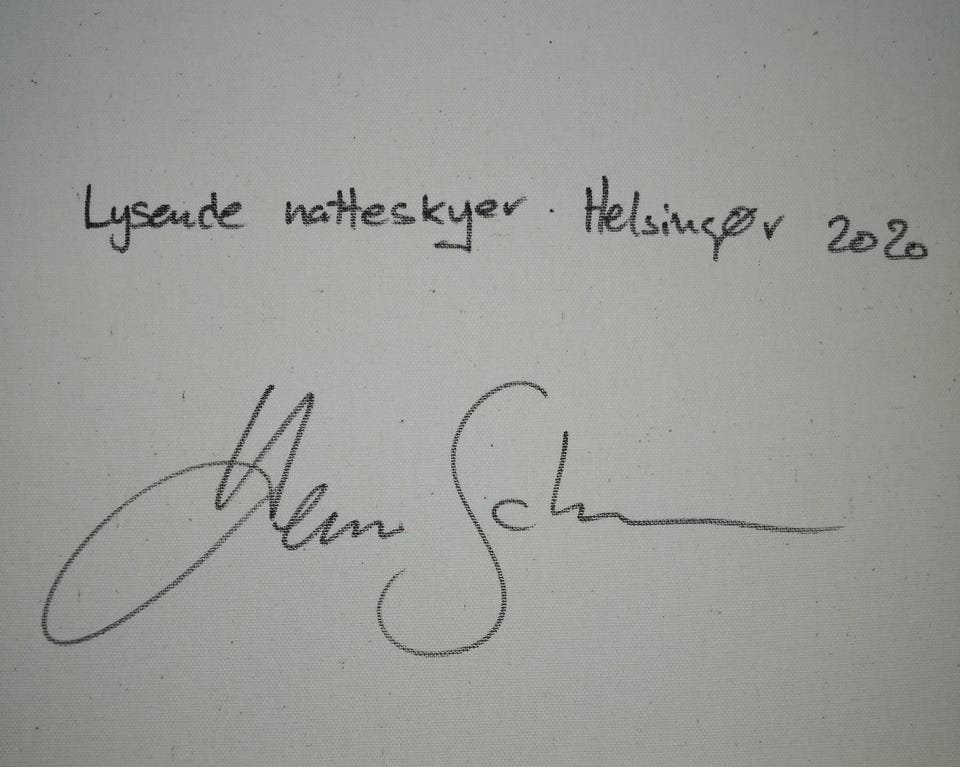 Lysende natteskyer · Helsingør 2020